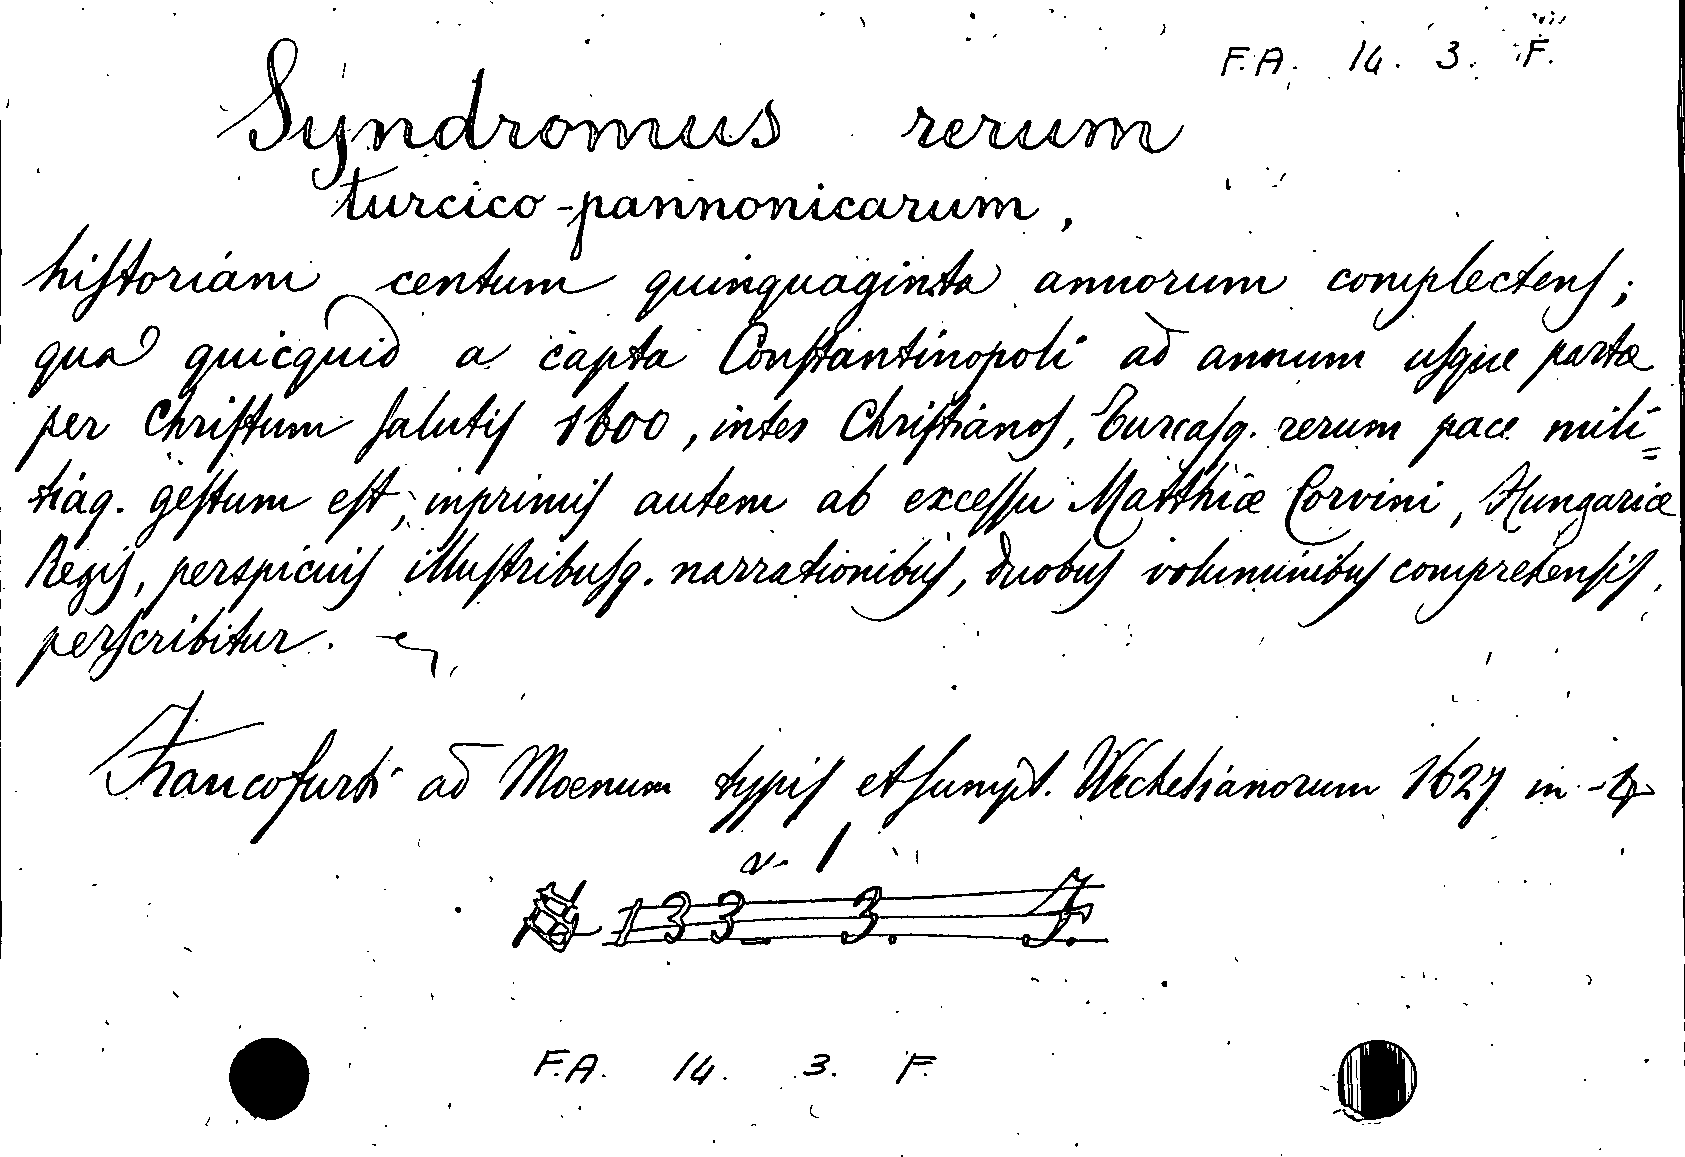 F.A. 14. 3. F.
Syndromus rerum
turcico-pannonicarum,
hiſtoriam centum quinquaginta annorum complectens;
qua quicquid a capta Conſtantinopoli ad annum uſque partæ
per Chriſtum ſalutis 1600, inter Chriſtianos, Turcaſq. rerum pace mili=
tiaq. geſtum eſt, inprimis autem ab exceſſu Matthiæ Corvini, Hungariæ
Regis, perspicuis illuſtribuſq. narrationibus, duobus voluminibus comprehenſis,
perſcribitur.
Francofurti ad Moenum typis et ſumpt. Wechelianorum 1627 in-4
v. 1
133 3. F.
F.A. 14. 3. F.